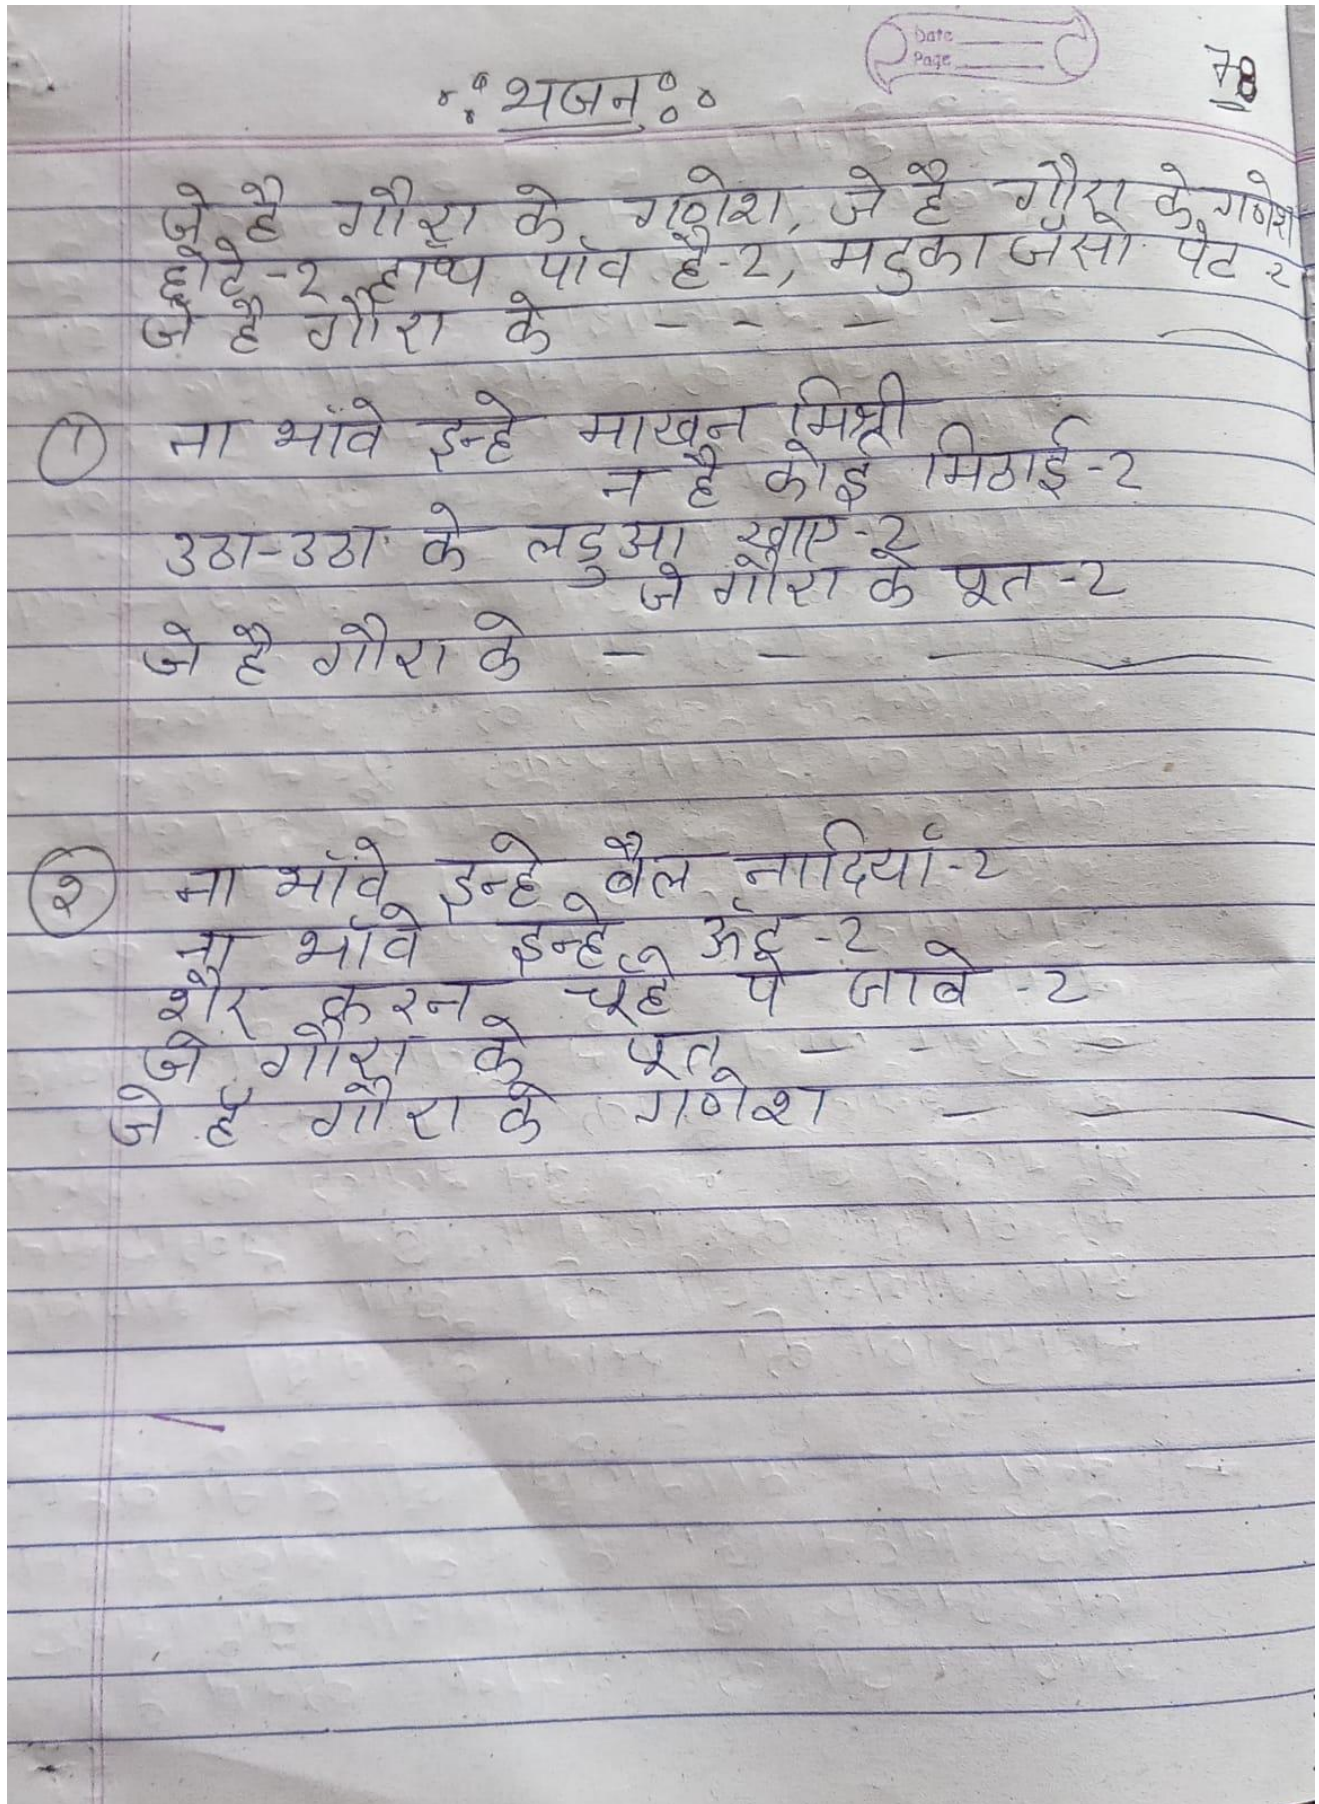 Date
Page
78
भजन
जे है गौरा के गणेश, जे है गौरा के गणेश
छोटे-२ हाथ पाँव है-2, मटुका जैसो पेट-२
जे है गौरा के - - - -
① ना भाँवे इन्हे माखन मिश्री
न है कोई मिठाई-2
उठा-उठा के लडुआ खाए-2
जे गौरा के पूत-2
जे है गौरा के - - -
② ना भाँवे इन्हे बैल नादियाँ-2
ना भाँवे इन्हे ऊँट-2
शैर करन चूहे पे जावे-2
जे गौरा के पूत - - -
जे है गौरा के गणेश - -